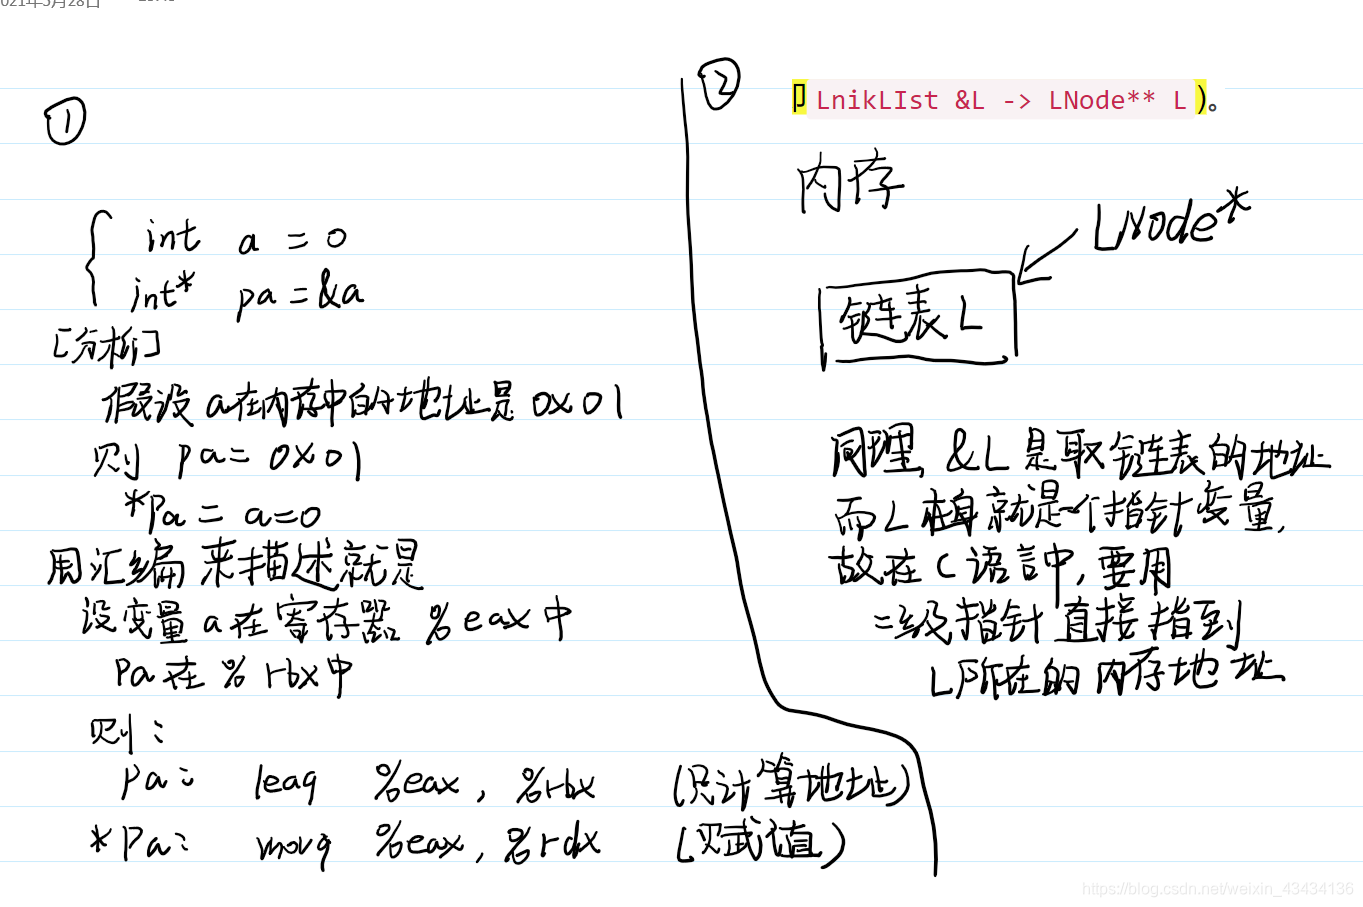 021年5月28日
①
int a = 0
int* pa = &a
[分析]
假设 a在内存中的地址是 0x01
则 pa = 0x01
*Pa = a = 0
用汇编来描述就是
设变量 a 在寄存器 %eax 中
Pa 在 %rbx 中
则：
Pa = leaq %eax, %rbx (只计算地址)
*Pa = movq %eax, %rdx (只赋值)
②
LnikLIst &L -> LNode** L )。
内存
LNode*
链表 L
同理, &L 是取链表的地址
而 L 本身就是一个指针变量,
故在 C 语言中, 要用
二级指针直接指到
L所在的内存地址
https://blog.csdn.net/weixin_43434136